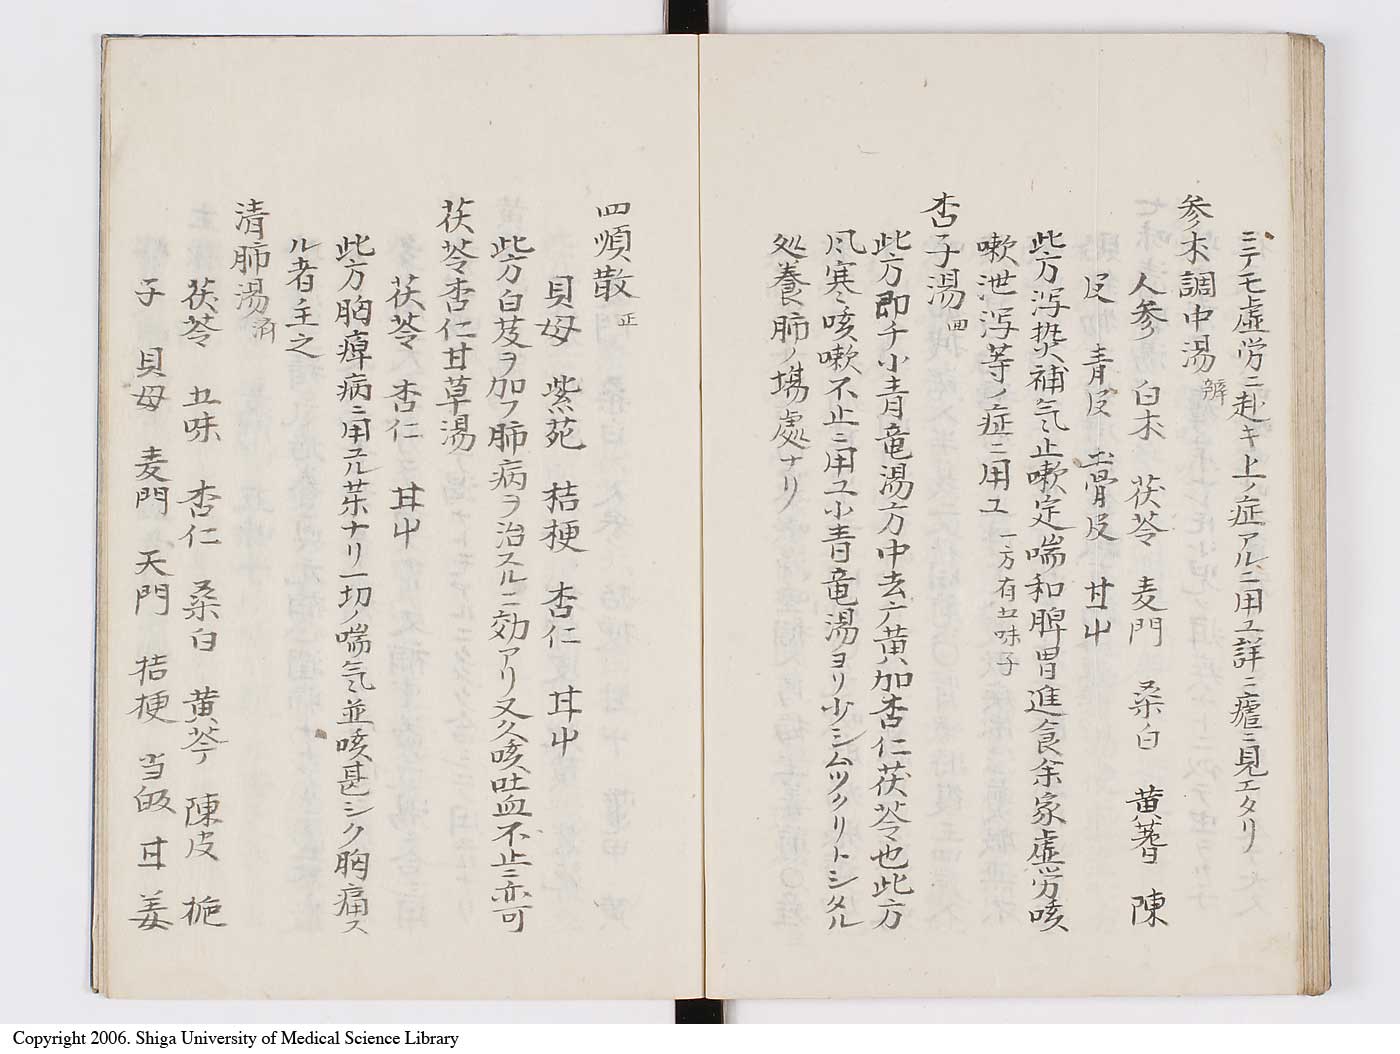 ミテモ虚労ニ赴キ上ノ症アルニ用ユ詳ニ瘧ニ見エタリ
参朮調中湯 辨
人参 白朮 茯苓 麦門 桑白 黄蓍 陳
皮 青皮 骨皮 甘艸
此方瀉熱補気止嗽定喘和脾胃進食余家虚労咳
嗽泄瀉等ノ症ニ用ユ 一方有五味子
杏子湯 四
此方即チ小青竜湯方中去广黄加杏仁茯苓也此方
風寒咳嗽不止ニ用ユ小青竜湯ヨリ少シムツクリトシタル
処養肺ノ場處ナリ
四順散 正
貝母 紫苑 桔梗 杏仁 甘艸
此方白芨ヲ加フ肺病ヲ治スルニ効アリ又久咳吐血不止ニ亦可
茯苓杏仁甘草湯
茯苓 杏仁 甘艸
此方胸痺病ニ用ユル薬ナリ一切ノ喘気並咳甚シク胸痛ス
ル者主之
清肺湯 済
茯苓 五味 杏仁 桑白 黄芩 陳皮 梔
子 貝母 麦門 天門 桔梗 当皈 甘 姜
Copyright 2006. Shiga University of Medical Science Library